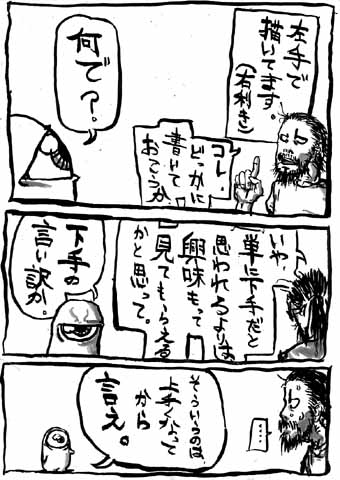 左手で
描いてます。
(右利き)
コレ、
どっかに
書いて
おこうか
何で?
いや、
単に下手だと
思われるよりは
興味もって
見てもらえる
かと思って。
下手の
言い訳か。
そういうのは、
上手くなって
から
言え。
……